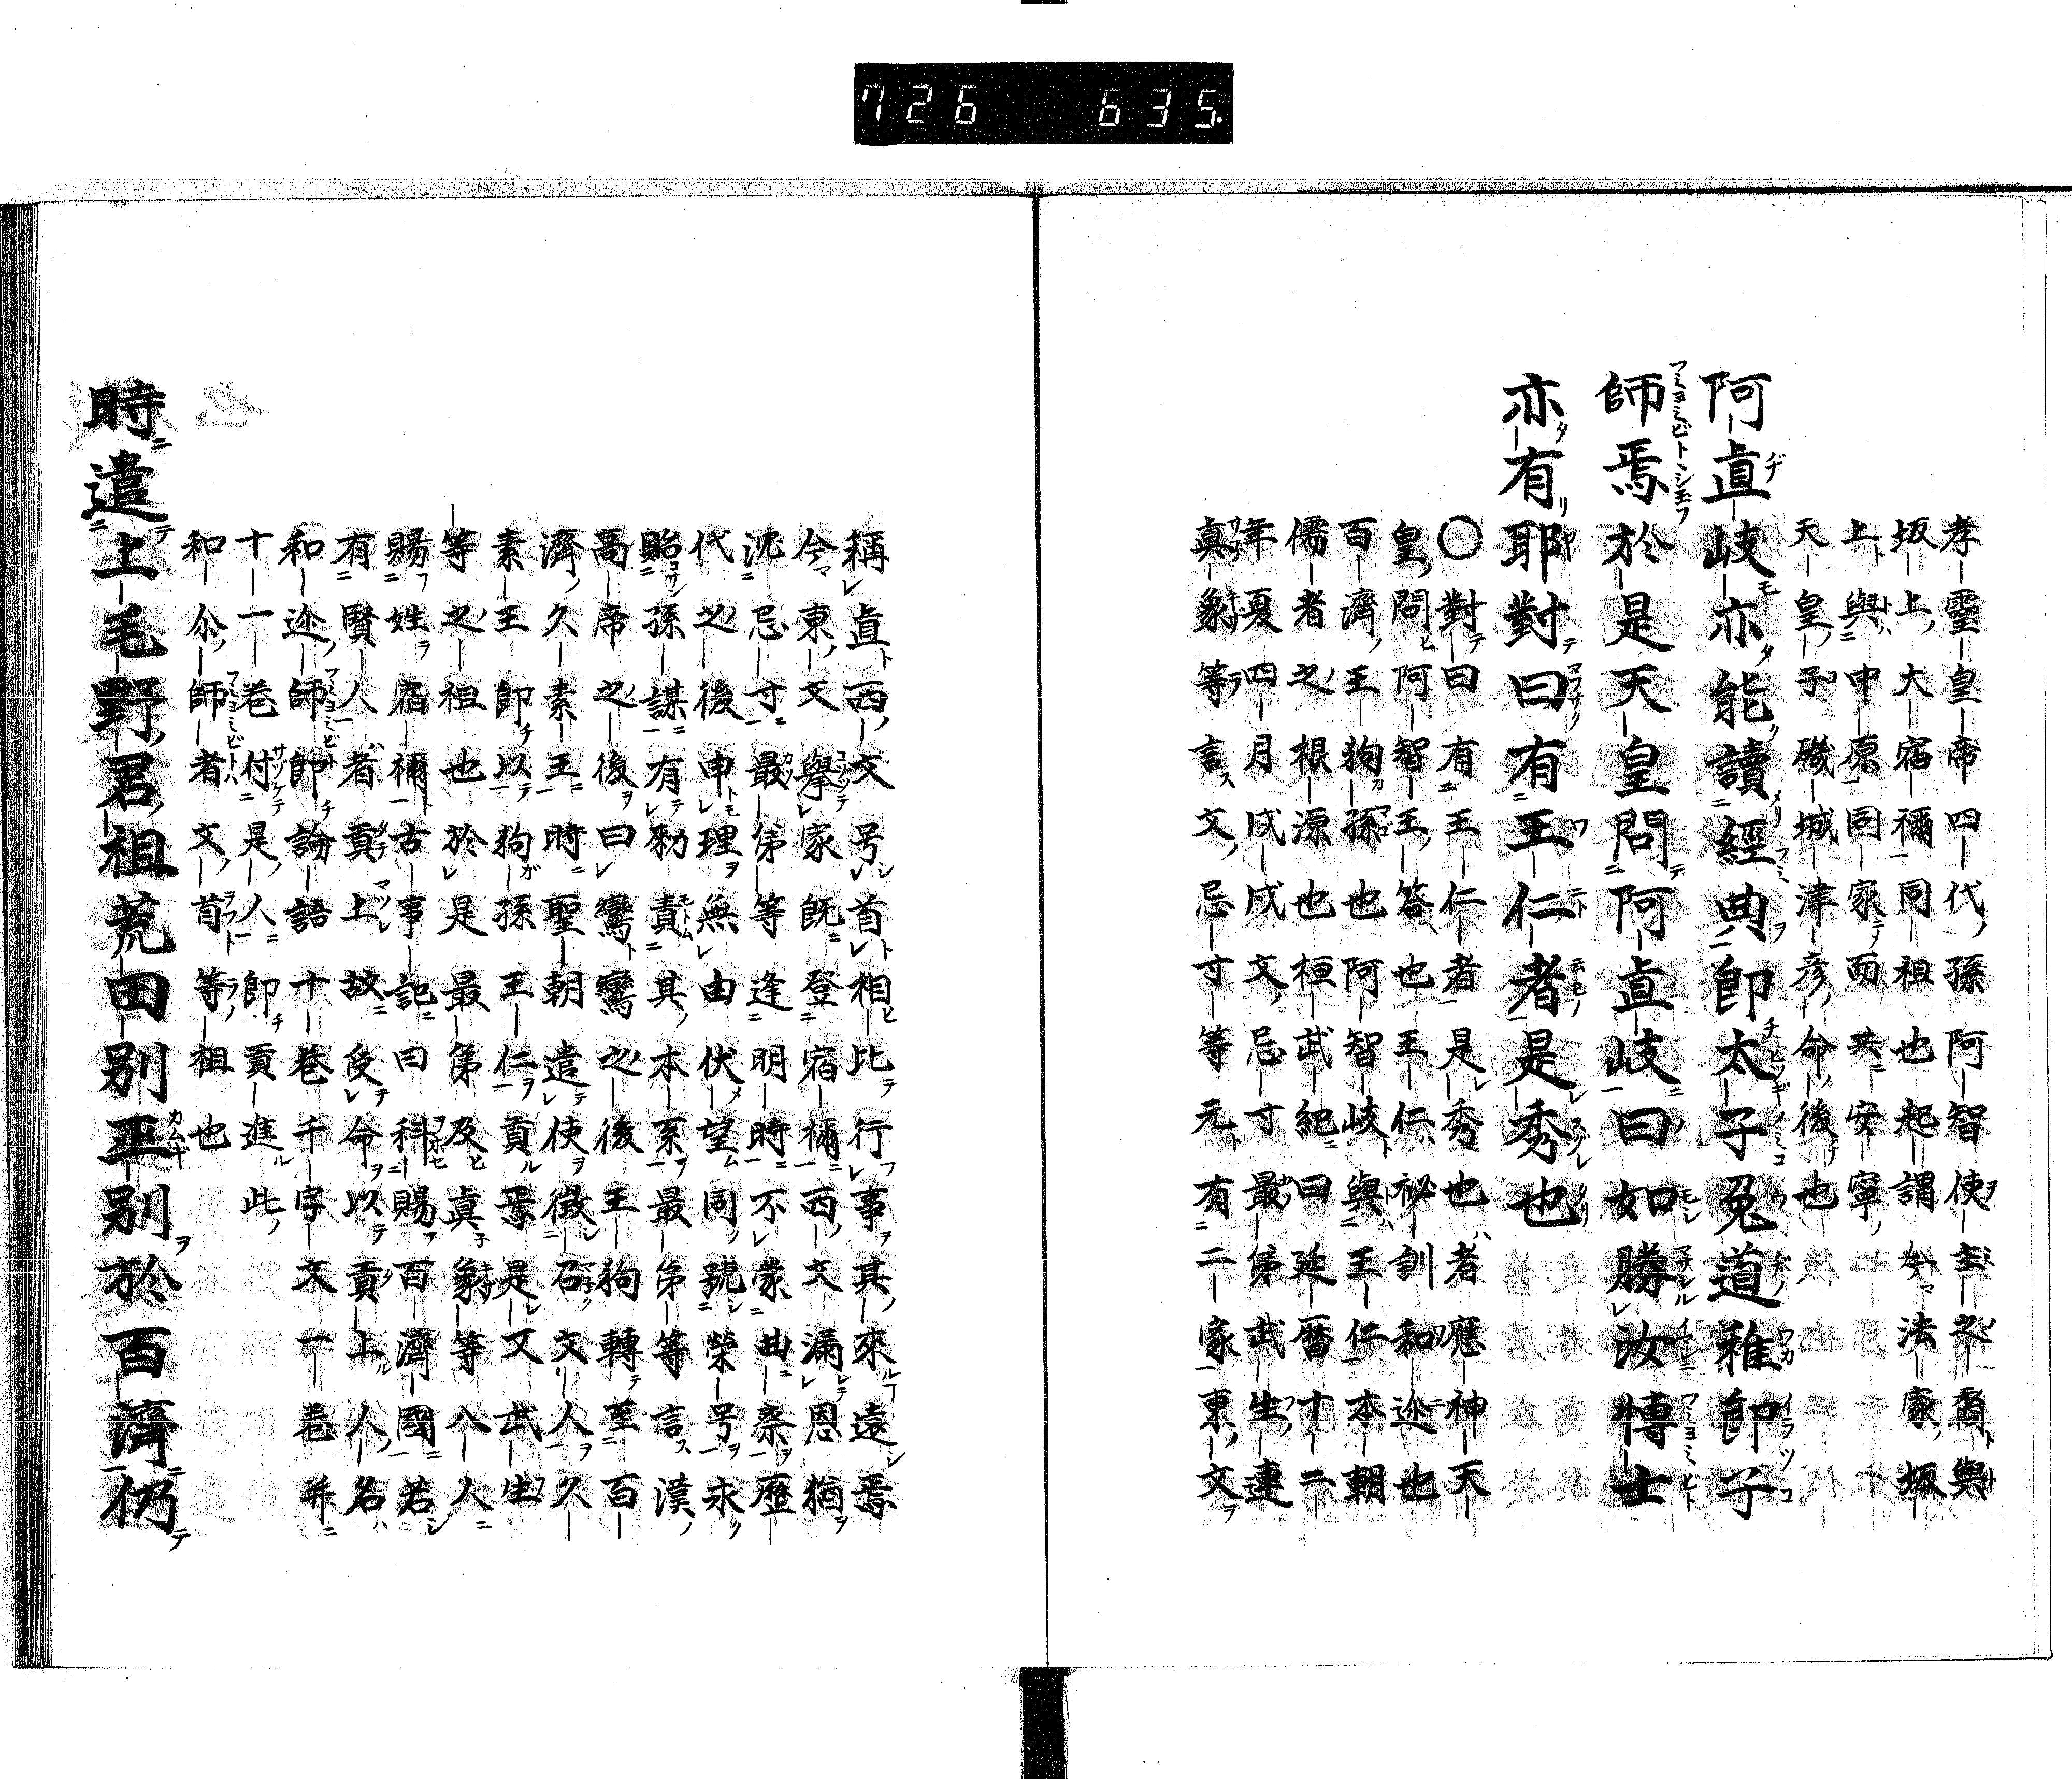 726 635
孝靈皇帝四代孫阿智使主之裔與
坂上大宿禰同祖也起謂今法家坂
上與中原同家而共安寧
天皇子磯城津彦命後也
阿直岐亦能讀經典即太子菟道稚郎子
師焉於是天皇問阿直岐曰如勝汝博士
亦有耶對曰有王仁者是秀也
〇對曰有王仁者是秀也者應神天
皇問阿智王答也王仁祕訓和迩也
百濟王狗孫也阿智岐與王仁本朝
儒者之根源也桓武紀曰延暦十二
年夏四月戊戌文忌寸最弟武生連
真象等言文忌寸等元有二家東文
稱直西文号首相比行事其來遠焉
今東文擧家既登宿禰西文漏恩猶
沈忌寸最弟等逢明時不蒙曲察歴
代之後申理無由伏望同號榮号永
貽孫謀有勅責其本系最弟等言漢
高帝之後曰鸞鸞之後王狗轉至百
濟久素王時聖朝遣使徴召文人久
素王即以狗孫王仁貢焉是又武生
等之祖也於是最弟及真象等八人
賜姓宿禰古事記曰科賜百濟國若
有賢人者貢上故受命以貢上人名
和迩師即論語十巻千字文一巻并
十一巻付是人即貢進此
和尒師者文首等祖也
時遣上毛野君祖荒田別巫別於百濟仍